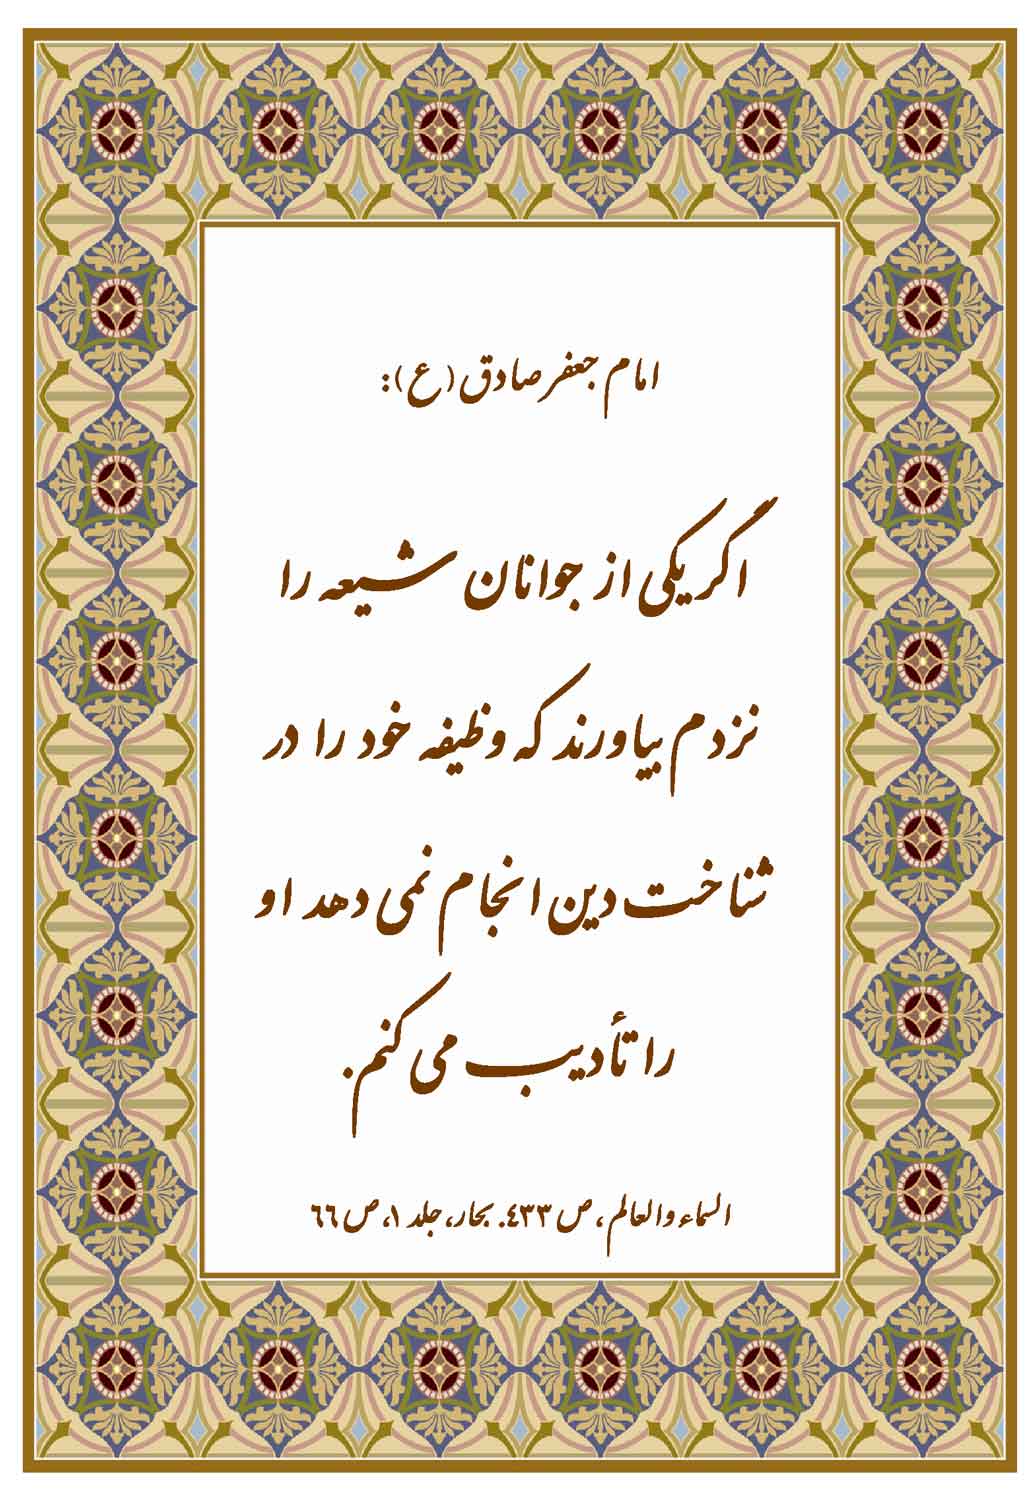 امام جعفر صادق (ع):
اگر یکی از جوانان شیعه را
نزدم بیاورند که وظیفه خود را در
شناخت دین انجام نمی دهد او
را تأدیب می کنم.
السماء والعالم، ص ۴۳۳. بحار، جلد ۱، ص ۶۶